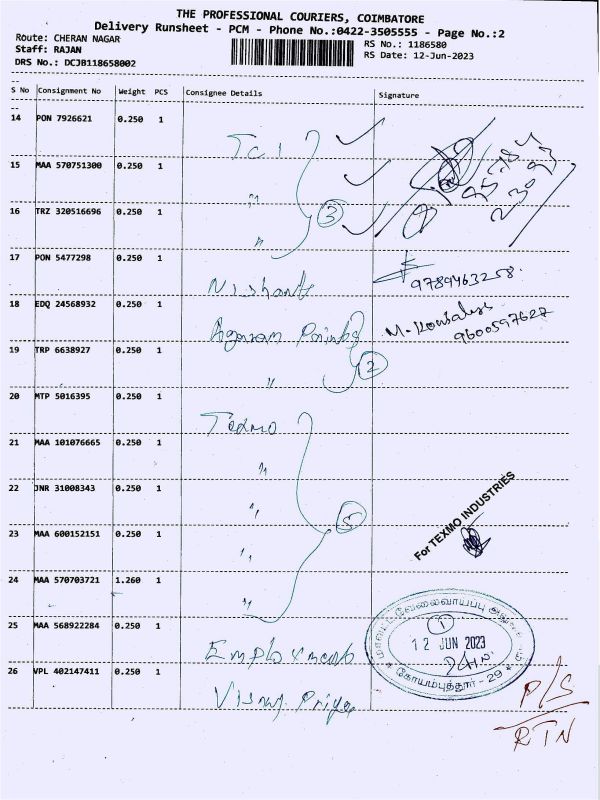 THE PROFESSIONAL COURIERS, COIMBATORE
Delivery Runsheet - PCM - Phone No.:0422-3505555 - Page No.:2
Route: CHERAN NAGAR
Staff: RAJAN
DRS No.: DCJB118658002
RS No.: 1186580
RS Date: 12-Jun-2023
S No Consignment No Weight PCS Consignee Details Signature
14 PON 7926621 0.250 1 TCI
15 MAA 570751300 0.250 1 "
16 TRZ 320516696 0.250 1 "
3
17 PON 5477298 0.250 1 Nishant 9789463258
18 EDQ 24568932 0.250 1 Agaram Points 9600597627
19 TRP 6638927 0.250 1 "
2
20 MTP 5016395 0.250 1 Texmo
21 MAA 101076665 0.250 1 "
22 JNR 31008343 0.250 1 "
23 MAA 600152151 0.250 1 "
24 MAA 570703721 1.260 1 "
5
For TEXMO INDUSTRIES
25 MAA 568922284 0.250 1 Employment
மாவட்ட வேலைவாய்ப்பு
1
12 JUN 2023
* கோயம்புத்தூர் - 29 *
26 VPL 402147411 0.250 1 Visnu Priya
P/S
RTN